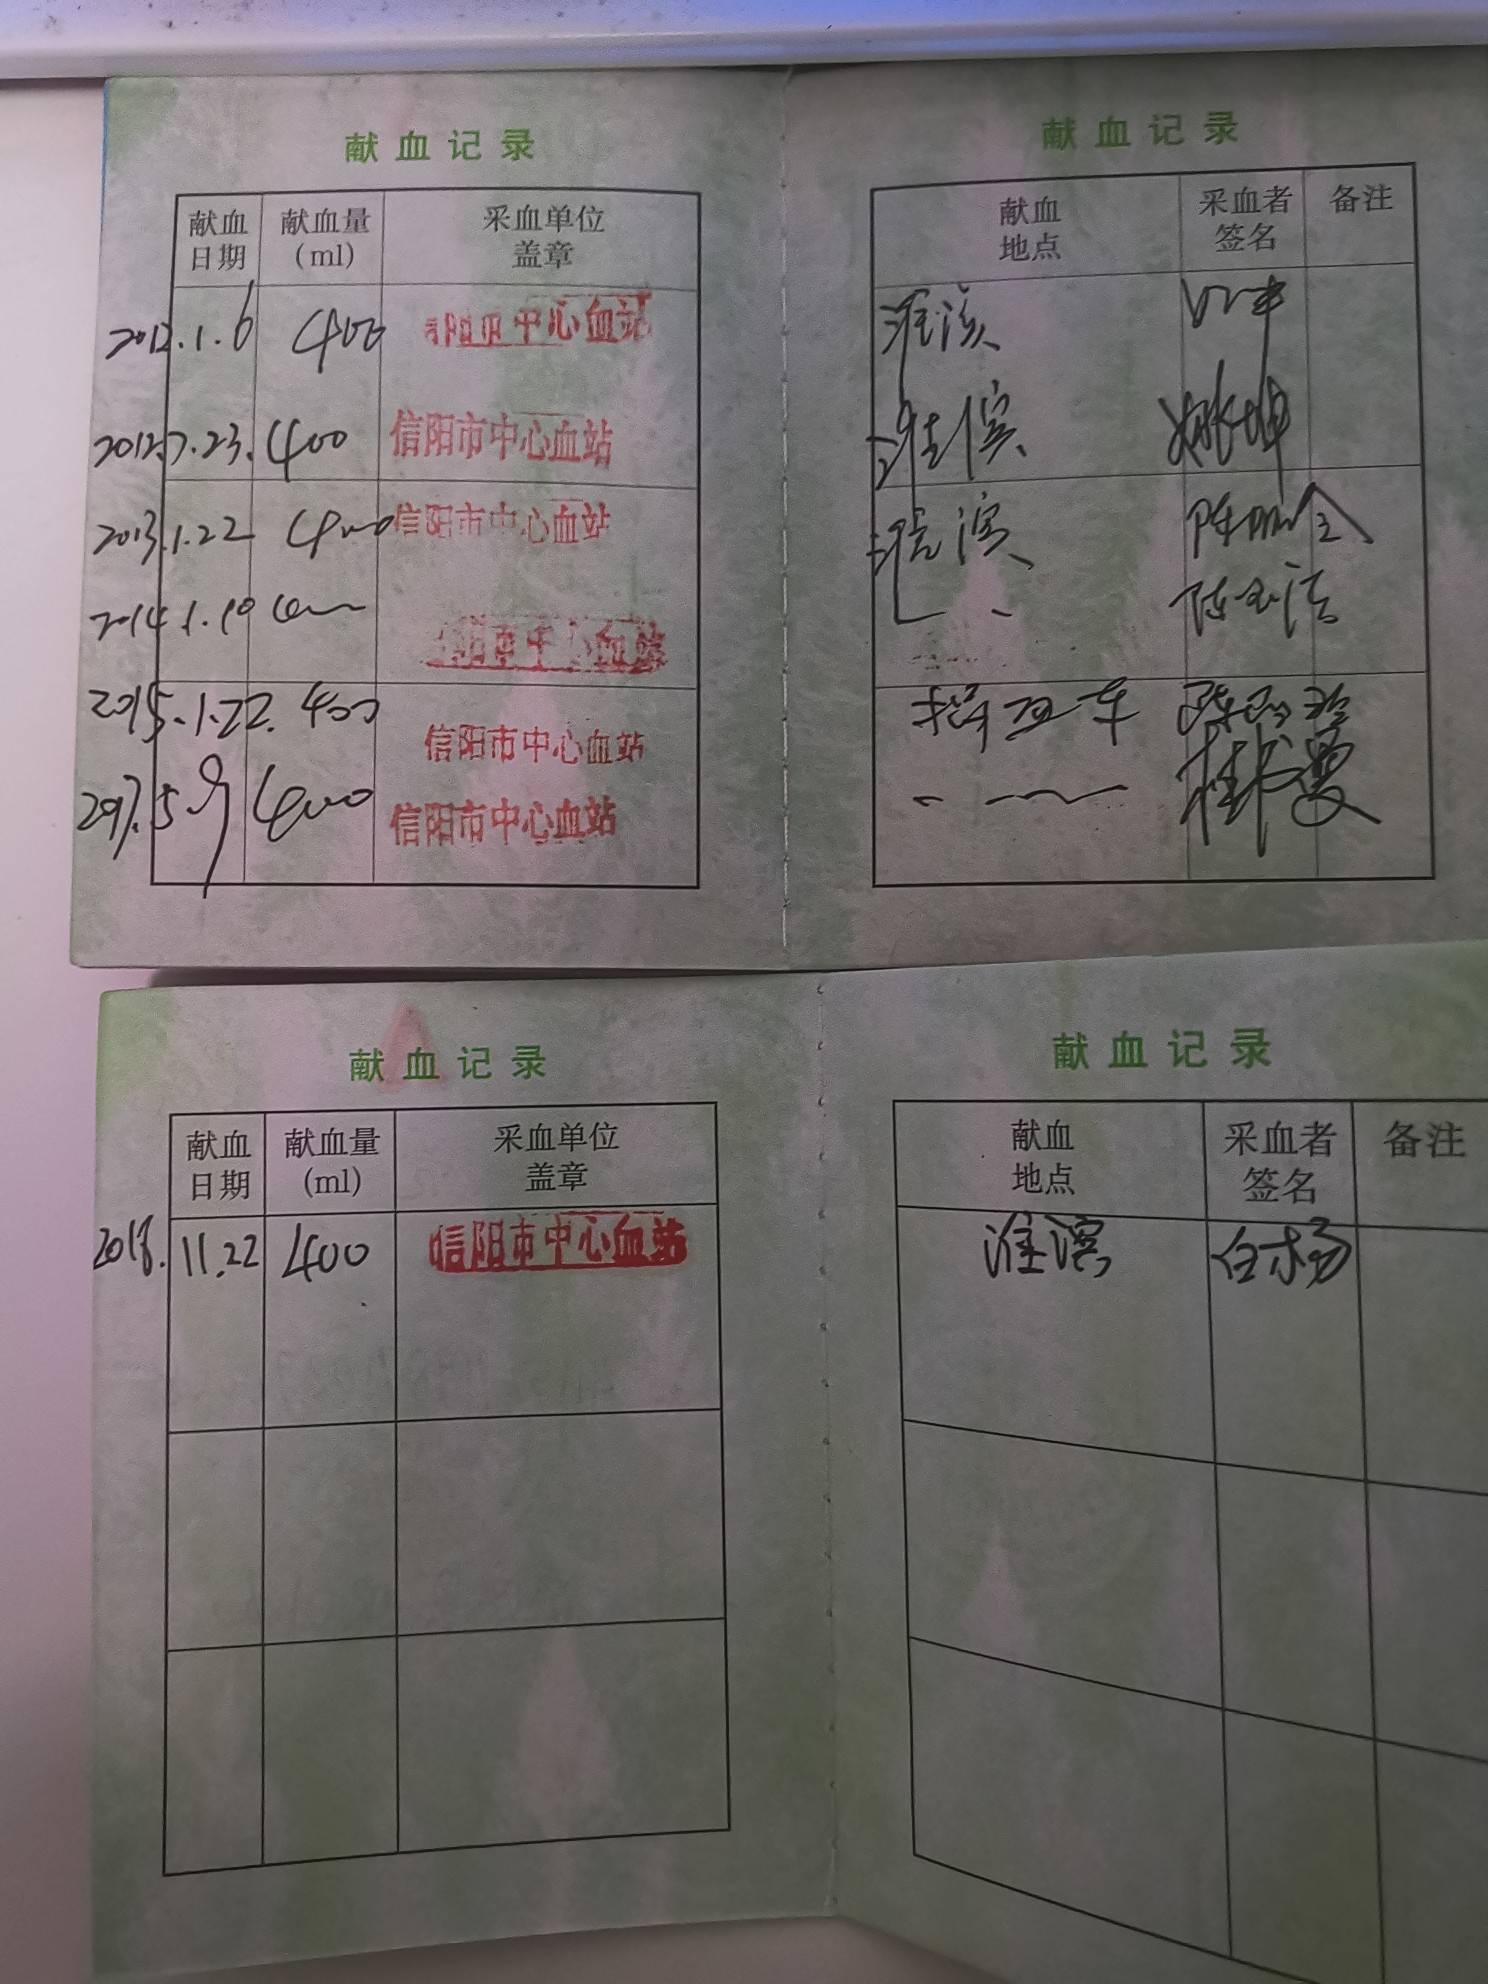 献血记录
献血日期 献血量(ml) 采血单位盖章
2012.1.6 400 信阳市中心血站
2012.7.23. 400 信阳市中心血站
2013.1.22 400 信阳市中心血站
2014.1.10 400 信阳市中心血站
2015.1.22. 400 信阳市中心血站
2017.5.9 400 信阳市中心血站
献血记录
献血地点 采血者签名 备注
淮滨
淮滨 姚坤
淮滨
采血车
献血记录
献血日期 献血量(ml) 采血单位盖章
2018. 11.22 400 信阳市中心血站
献血记录
献血地点 采血者签名 备注
淮滨 白杨